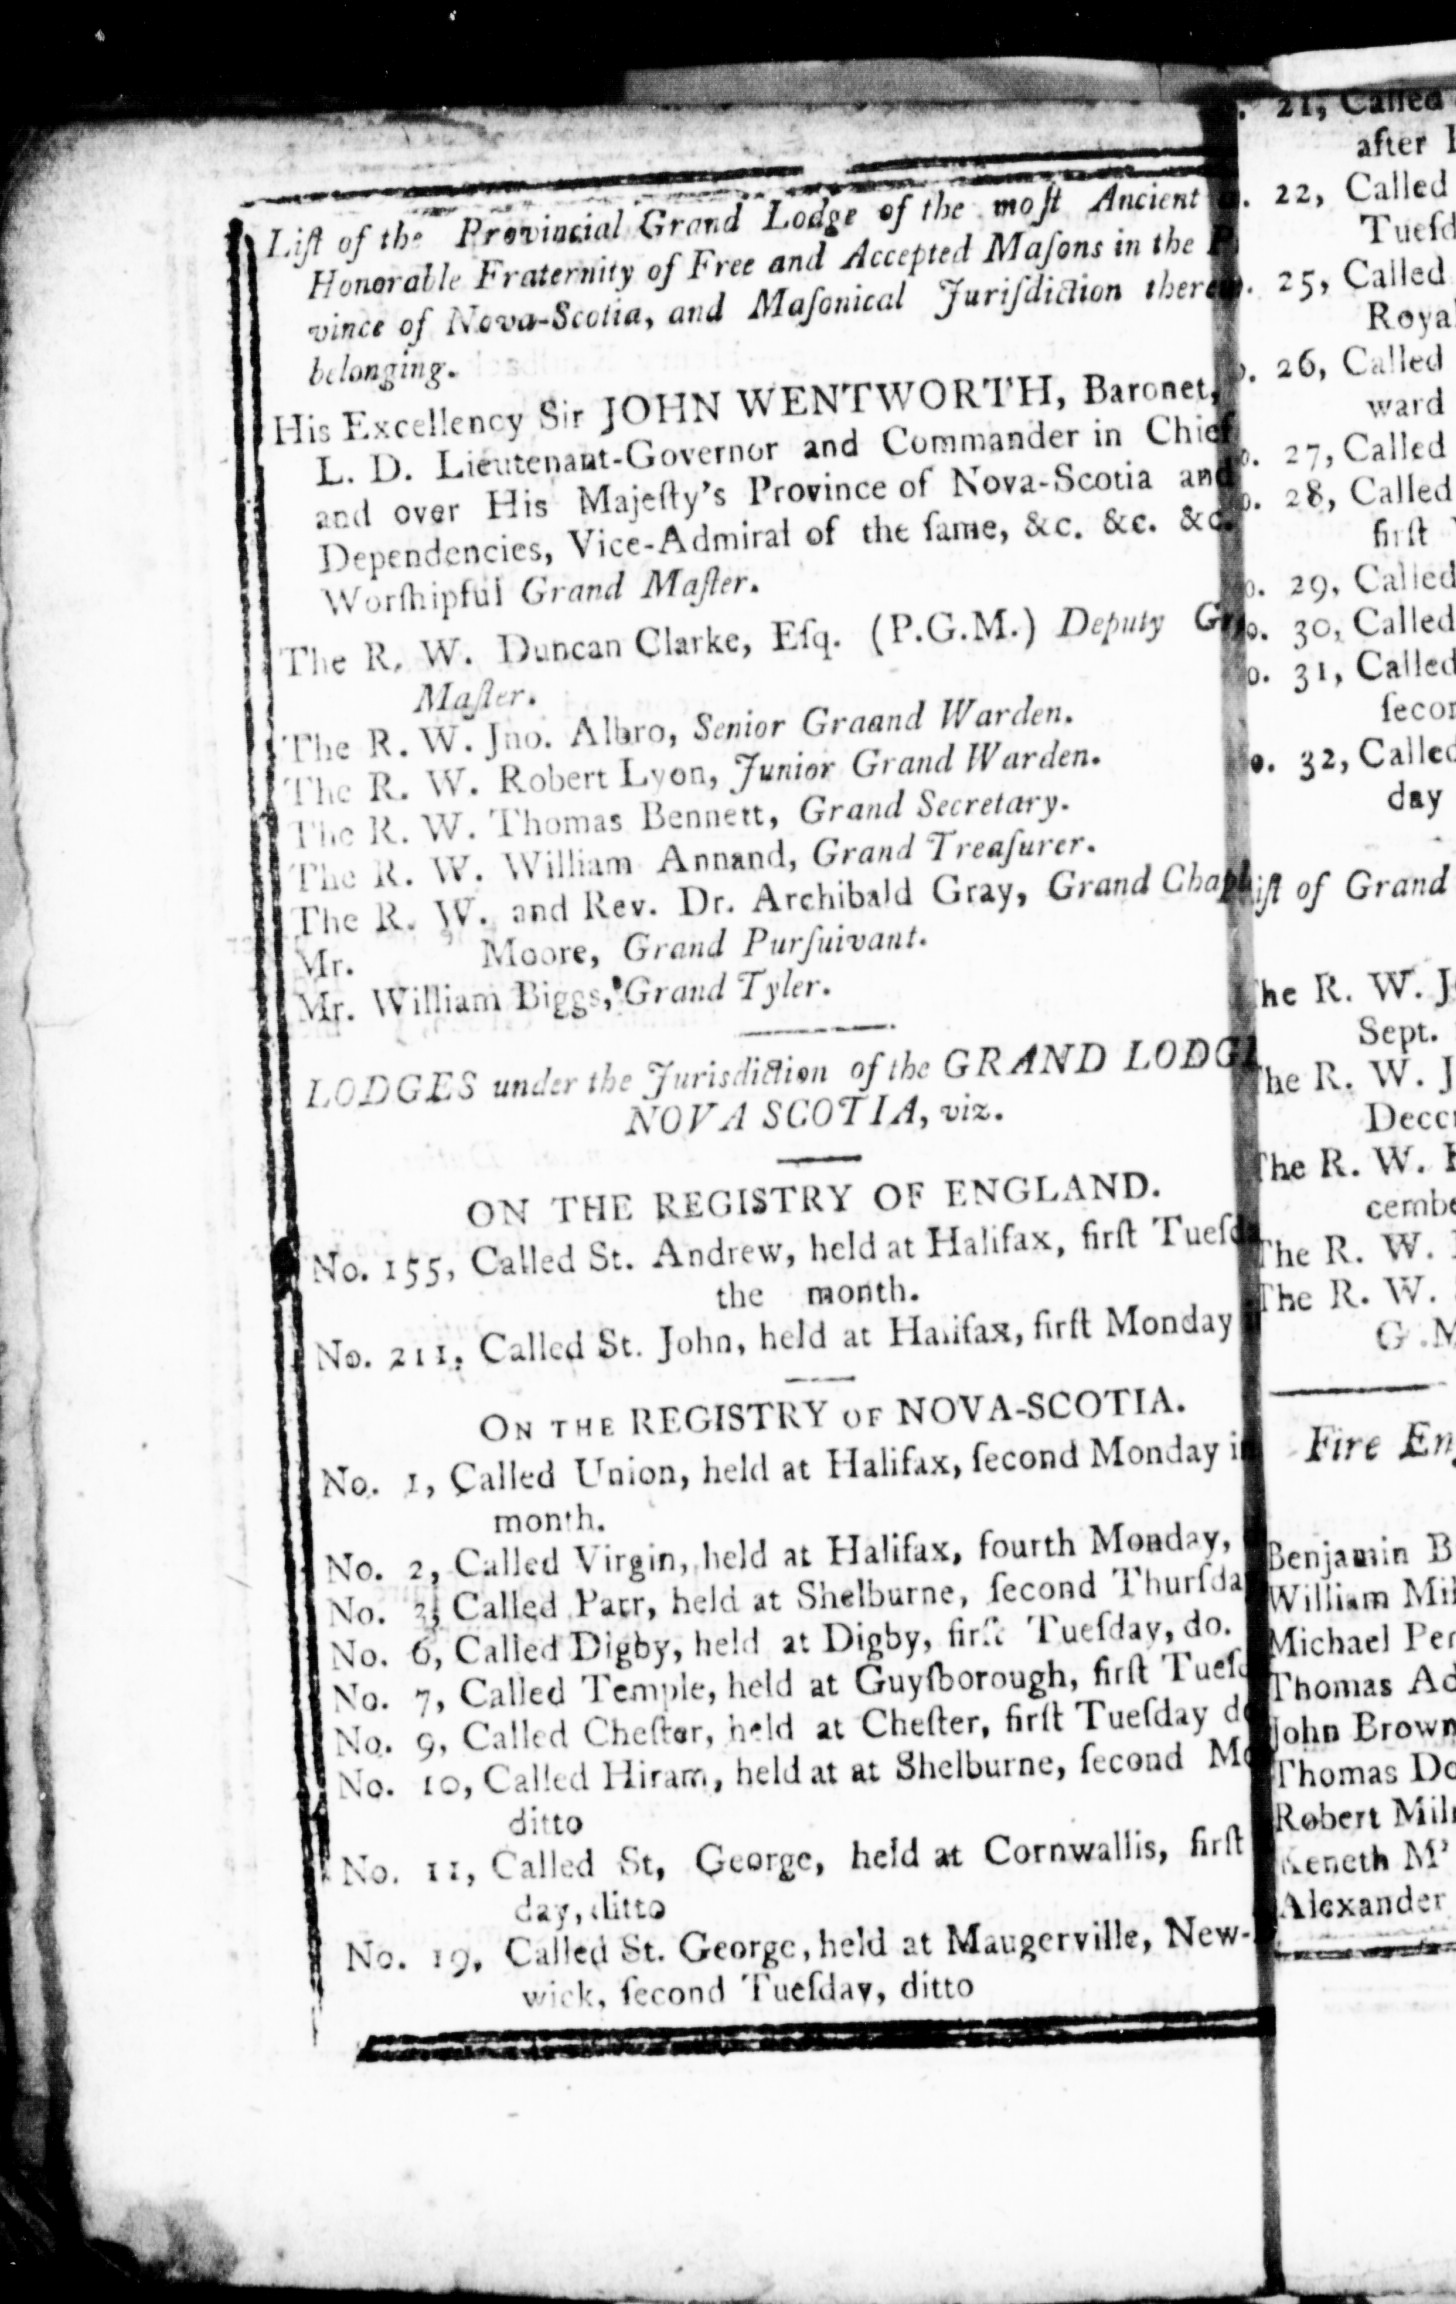 Liſt of the Provincial Grand Lodge of the moſt Ancient
Honorable Fraternity of Free and Accepted Maſons in the P
vince of Nova-Scotia, and Maſonical Juriſdiction there
belonging.
His Excellency Sir JOHN WENTWORTH, Baronet,
L. D. Lieutenant-Governor and Commander in Chief
and over His Majeſty's Province of Nova-Scotia and
Dependencies, Vice-Admiral of the ſame, &c. &c. &c.
Worſhipful Grand Maſter.
The R. W. Duncan Clarke, Eſq. (P.G.M.) Deputy Gr
Maſter.
The R. W. Jno. Albro, Senior Graand Warden.
The R. W. Robert Lyon, Junior Grand Warden.
The R. W. Thomas Bennett, Grand Secretary.
The R. W. William Annand, Grand Treaſurer.
The R. W. and Rev. Dr. Archibald Gray, Grand Chapl
Mr. Moore, Grand Purſuivant.
Mr. William Biggs, Grand Tyler.
LODGES under the Jurisdiction of the GRAND LODGE
NOVA SCOTIA, viz.
ON THE REGISTRY OF ENGLAND.
No. 155, Called St. Andrew, held at Halifax, firſt Tueſda
the month.
No. 211, Called St. John, held at Halifax, firſt Monday
ON THE REGISTRY OF NOVA-SCOTIA.
No. 1, Called Union, held at Halifax, ſecond Monday in
month.
No. 2, Called Virgin, held at Halifax, fourth Monday,
No. 3, Called Parr, held at Shelburne, ſecond Thurſda
No. 6, Called Digby, held at Digby, firſt Tueſday, do.
No. 7, Called Temple, held at Guyſborough, firſt Tueſd
No. 9, Called Cheſter, held at Cheſter, firſt Tueſday do
No. 10, Called Hiram, held at at Shelburne, ſecond Mo
ditto
No. 11, Called St, George, held at Cornwallis, firſt
day, ditto
No. 19, Called St. George, held at Maugerville, New-
wick, ſecond Tueſday, ditto
21, Called
after
22, Called
Tueſd
25, Called
Roya
26, Called
ward
27, Called
28, Called
firſt
29, Called
30, Called
31, Called
ſecon
32, Called
day
iſt of Grand
The R. W. J
Sept.
The R. W. J
Dece
The R. W.
cembe
The R. W.
The R. W.
G. M
Fire En
Benjamin B
William Mil
Michael Per
Thomas Ad
John Brown
Thomas Do
Robert Miln
Keneth M'
Alexander